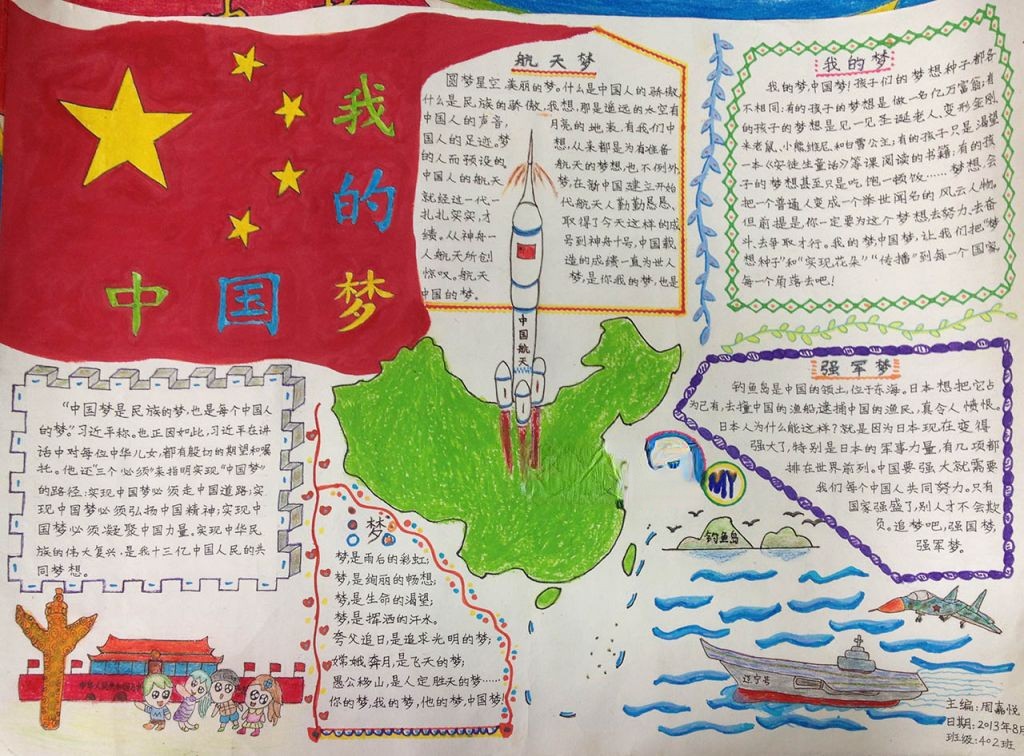 我的
中国梦
航天梦
圆梦星空,美丽的梦。什么是中国人的骄傲,
什么是民族的骄傲,我想,那是遥远的太空有
中国人的声音,月亮的地表,有我们中
国人的足迹。梦想,从来都是为有准备
的人而预设的航天的梦想,也不例外
中国人的航天梦,在新中国建立开始
就经过一代一代航天人勤勤恳恳、
扎扎实实,才取得了今天这样的成
绩。从神舟一号到神舟十号,中国载
人航天所创造的成绩一直为世人
惊叹。航天梦,是你我的梦,也是
中国的梦。
我的梦
我的梦,中国梦!孩子们的梦想种子都各
不相同:有的孩子的梦想是做一名亿万富翁;有
的孩子的梦想是见一见圣诞老人、变形金刚、
米老鼠、小熊维尼和白雪公主;有的孩子只是渴望
一本《安徒生童话》等课阅读的书籍;有的孩
子的梦想甚至只是吃饱一顿饭……梦想会
把一个普通人变成一个举世闻名的风云人物。
但前提是,你一定要为这个梦想去努力、去奋
斗、去争取才行。我的梦,中国梦,让我们把“梦
想种子”和“实现花朵”“传播”到每一个国家
每一个角落去吧!
强军梦
钓鱼岛是中国的领土,位于东海。日本想把它占
为己有,去撞中国的渔船,逮捕中国的渔民,真令人愤恨。
日本人为什么能这样?就是因为日本现在变得
强大了,特别是日本的军事力量,有几项都
排在世界前列。中国要强大就需要
我们每个中国人共同努力。只有
国家强盛了,别人才不会欺
负。追梦吧,强国梦,
强军梦。
“中国梦是民族的梦,也是每个中国人
的梦。”习近平称。也正因如此,习近平在讲
话中对每位中华儿女,都有殷切的期望和嘱
托。他还“三个‘必须’”来指明实现“中国梦”
的路径:实现中国梦必须走中国道路;实
现中国梦必须弘扬中国精神;实现中
国梦必须凝聚中国力量。实现中华民
族的伟大复兴,是我十三亿中国人民的共
同梦想。
中国航天
梦
梦,是雨后的彩虹;
梦,是绚丽的畅想;
梦,是生命的渴望;
梦,是挥洒的汗水。
夸父追日,是追求光明的梦;
嫦娥奔月,是飞天的梦;
愚公移山,是人定胜天的梦……
你的梦,我的梦,他的梦,中国梦!
MY
钓鱼岛
辽宁号
主编:周嘉悦
日期:2013年8月
班级:402班